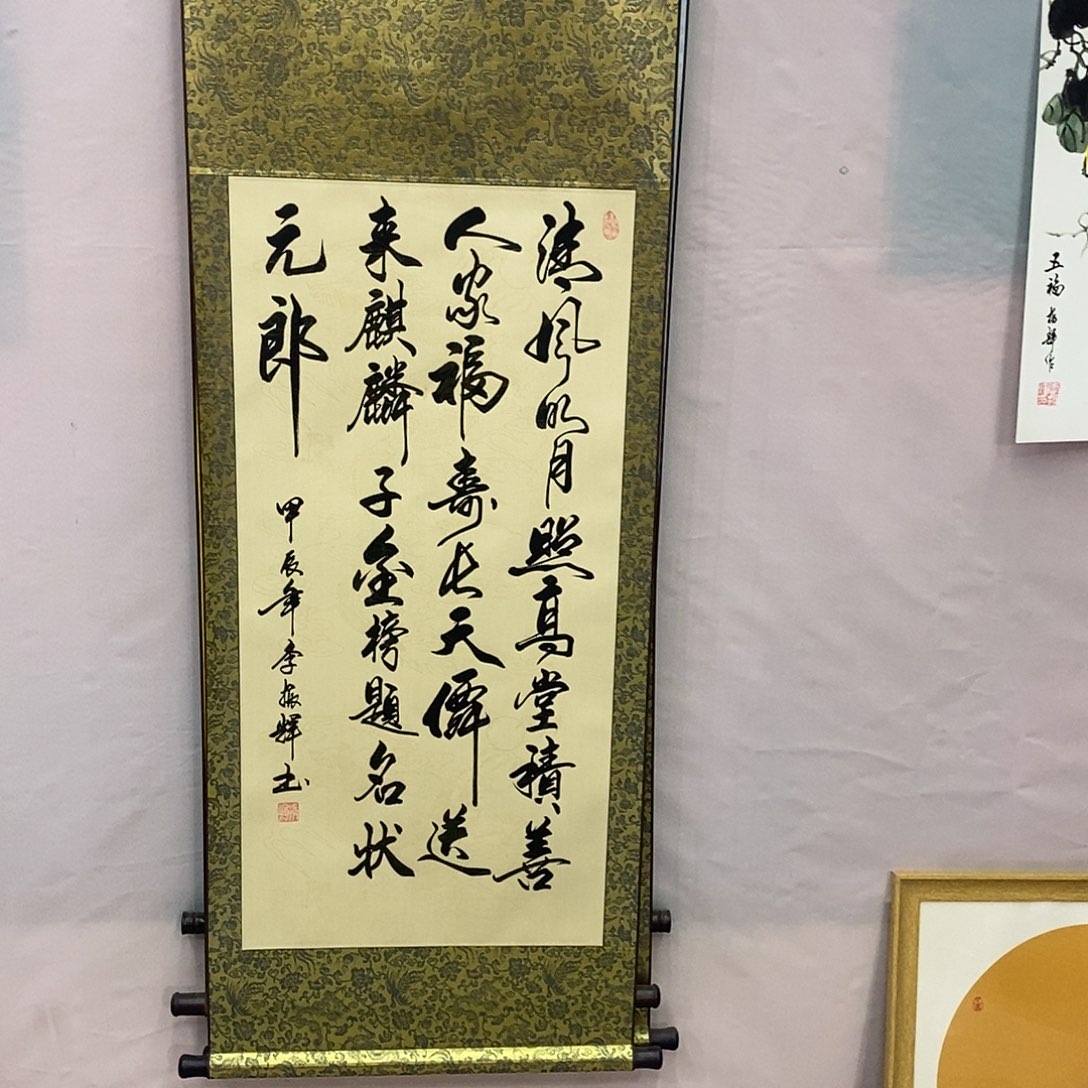 清风明月照高堂積善
人家福寿长天僊送
来麒麟子金榜題名状
元郎
甲辰年李振輝书
五福 振輝作